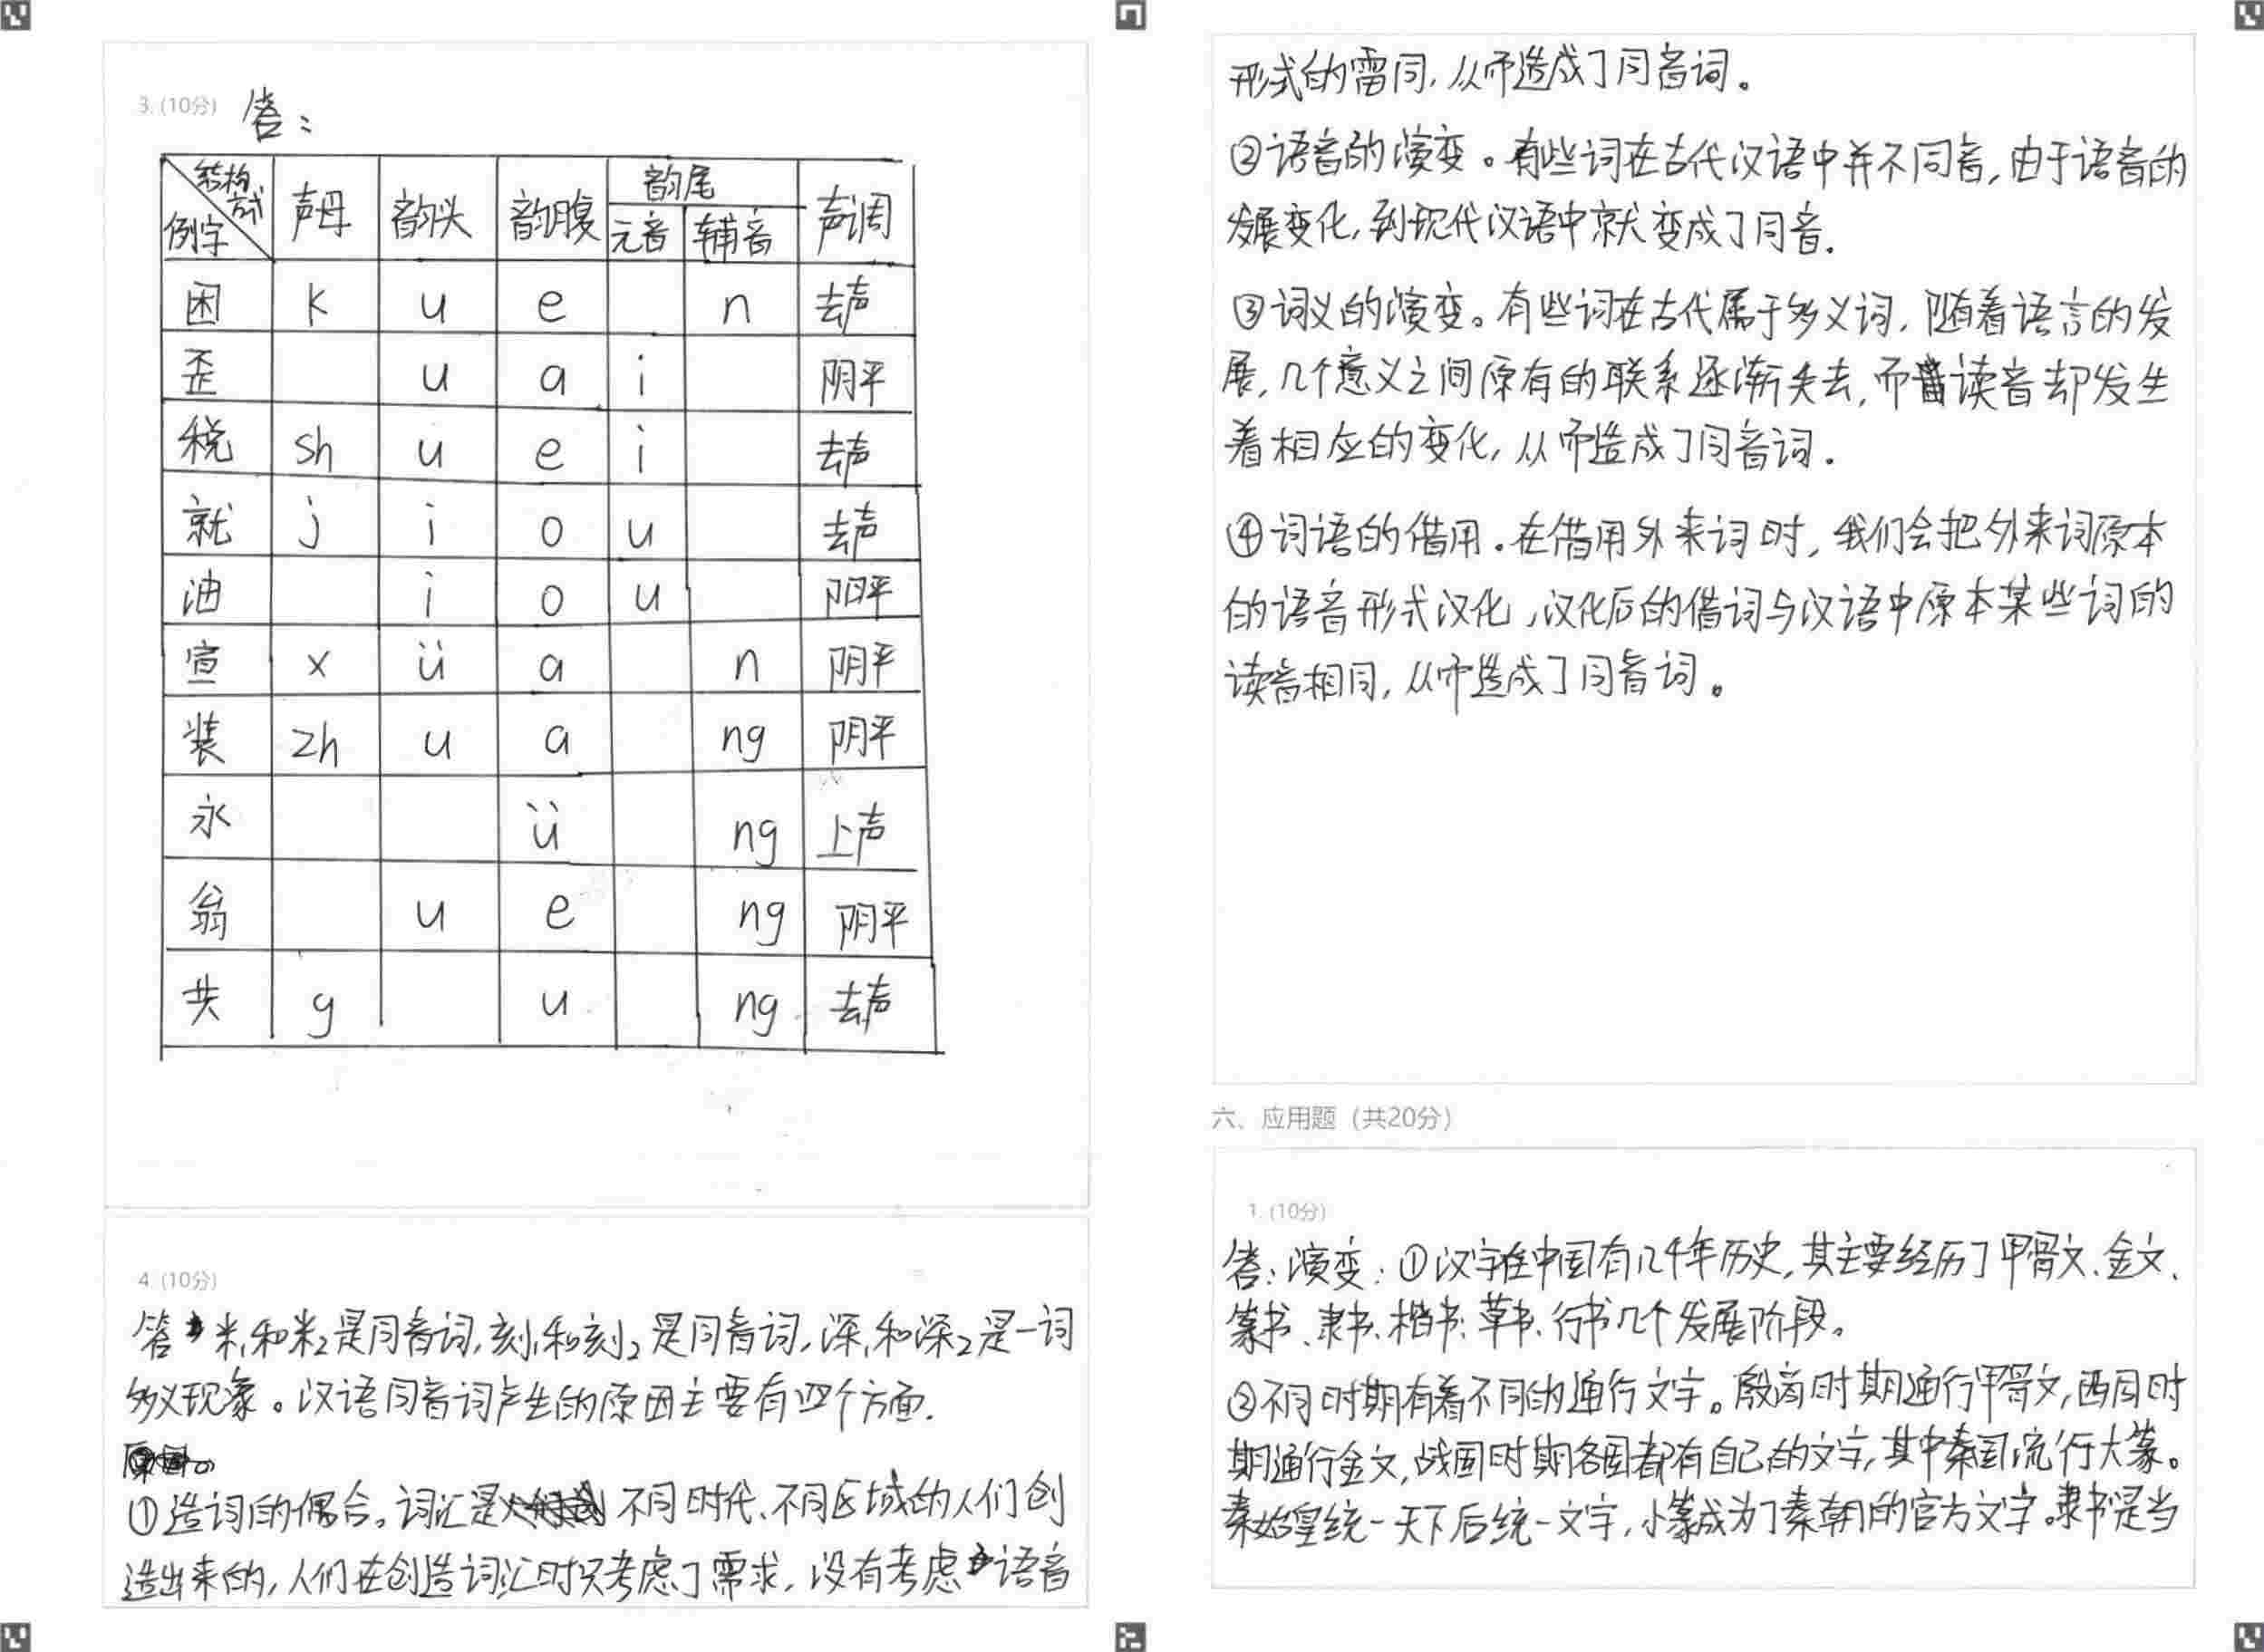 3. (10分) 答：
结构方式 例字 声母 韵头 韵腹 韵尾 元音 辅音 声调
困 k u e n 去声
歪 u a i 阴平
税 sh u e i 去声
就 j i o u 去声
油 i o u 阳平
宣 x ü a n 阴平
装 zh u a ng 阴平
永 ü ng 上声
翁 u e ng 阴平
共 g u ng 去声
4. (10分)
答 米₁和米₂是同音词,刻₁和刻₂是同音词,深₁和深₂是一词
多义现象。汉语同音词产生的原因主要有四个方面.
①造词的偶合。词汇是 不同时代、不同区域的人们创
造出来的,人们在创造词汇时只考虑了需求,没有考虑 语音
形式的雷同,从而造成了同音词。
②语音的演变。有些词在古代汉语中并不同音,由于语音的
发展变化,到现代汉语中就变成了同音.
③词义的演变。有些词在古代属于多义词,随着语言的发
展,几个意义之间原有的联系逐渐失去,而 读音却发生
着相应的变化,从而造成了同音词.
④词语的借用。在借用外来词时,我们会把外来词原本
的语音形式汉化,汉化后的借词与汉语中原本某些词的
读音相同,从而造成了同音词。
六、应用题（共20分）
1. (10分)
答:演变:①汉字在中国有几千年历史,其主要经历了甲骨文、金文、
篆书、隶书、楷书、草书、行书几个发展阶段。
②不同时期有着不同的通行文字。殷商时期通行甲骨文,西周时
期通行金文,战国时期各国都有自己的文字,其中秦国流行大篆。
秦始皇统一天下后统一文字,小篆成为了秦朝的官方文字。隶书是当